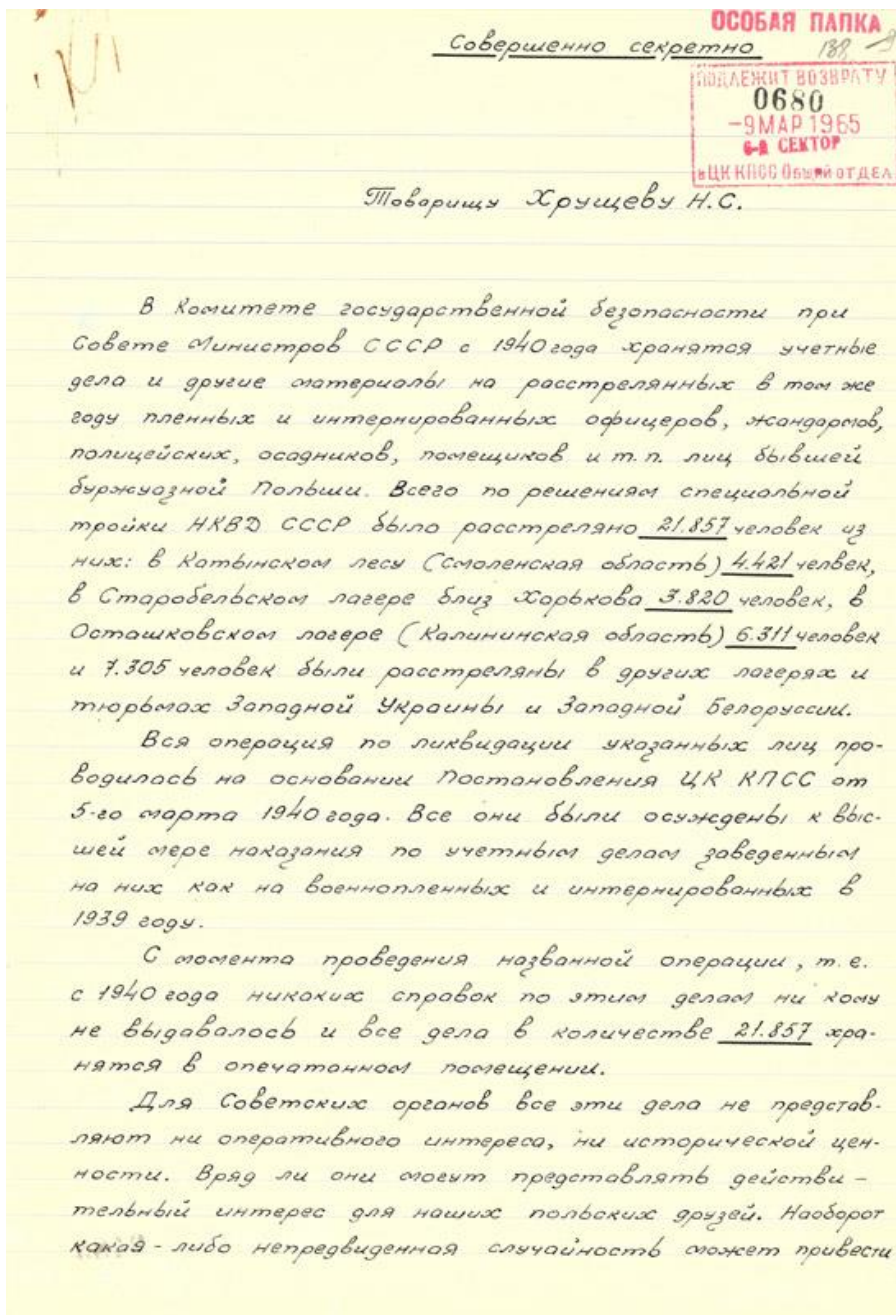 ОСОБАЯ ПАПКА
Совершенно секретно
ПОДЛЕЖИТ ВОЗВРАТУ
0680
-9 МАР 1965
6-й СЕКТОР
в ЦК КПСС Общий отдел
Товарищу Хрущеву Н.С.
В Комитете государственной безопасности при
Совете Министров СССР с 1940 года хранятся учетные
дела и другие материалы на расстрелянных в том же
году пленных и интернированных офицеров, жандармов,
полицейских, осадников, помещиков и т.п. лиц бывшей
буржуазной Польши. Всего по решениям специальной
тройки НКВД СССР было расстреляно 21.857 человек из
них: в Катынском лесу (Смоленская область) 4.421 человек,
в Старобельском лагере близ Харькова 3.820 человек, в
Осташковском лагере (Калининская область) 6.311 человек
и 7.305 человек были расстреляны в других лагерях и
тюрьмах Западной Украины и Западной Белоруссии.
Вся операция по ликвидации указанных лиц про-
водилась на основании Постановления ЦК КПСС от
5-го марта 1940 года. Все они были осуждены к выс-
шей мере наказания по учетным делам заведенным
на них как на военнопленных и интернированных в
1939 году.
С момента проведения названной операции, т.е.
с 1940 года никаких справок по этим делам ни кому
не выдавалось и все дела в количестве 21.857 хра-
нятся в опечатанном помещении.
Для Советских органов все эти дела не представ-
ляют ни оперативного интереса, ни исторической цен-
ности. Вряд ли они могут представлять действи-
тельный интерес для наших польских друзей. Наоборот
какая-либо непредвиденная случайность может привести